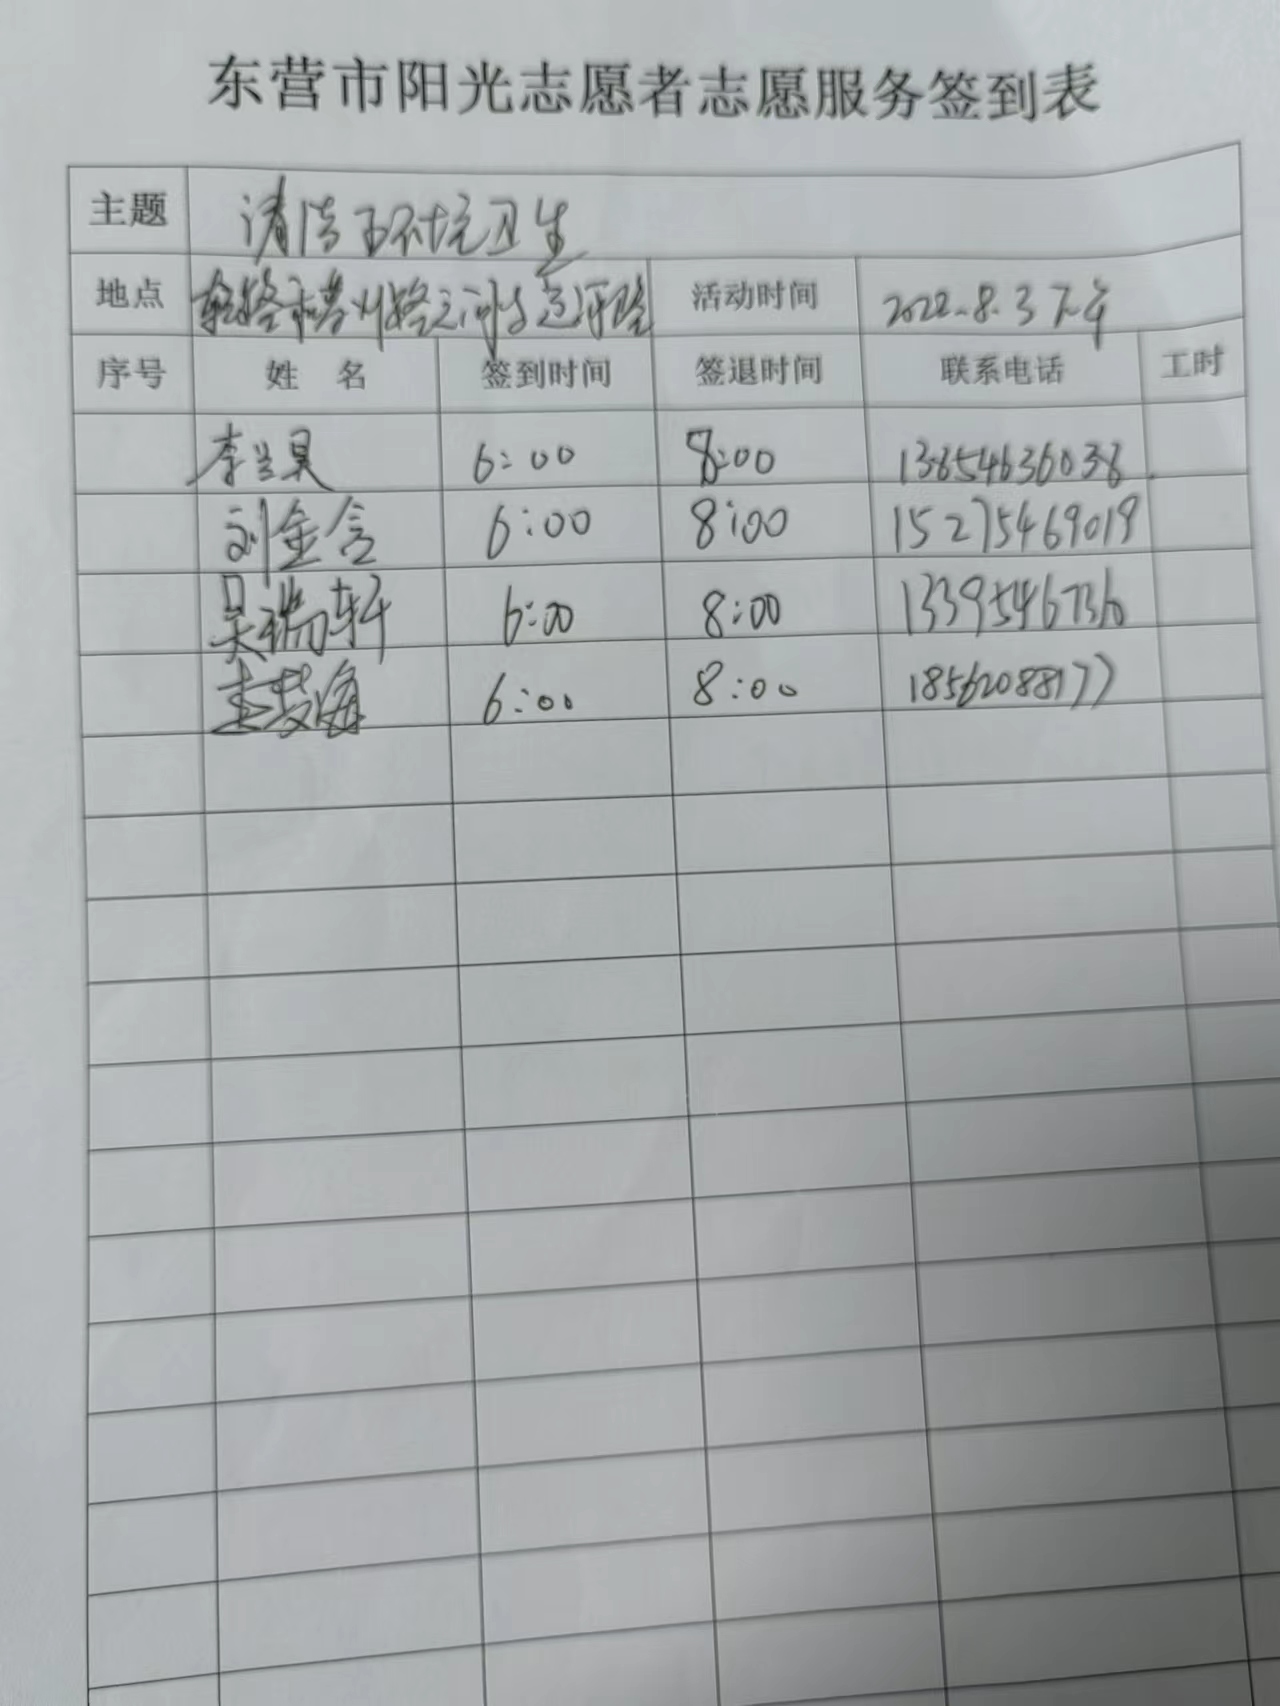 东营市阳光志愿者志愿服务签到表
主题 清洁环境卫生
地点 活动时间 2022.8.3下午
序号 姓名 签到时间 签退时间 联系电话 工时
李兰昊 6:00 8:00 13854636038
刘金含 6:00 8:00 15275469019
吴瑞轩 6:00 8:00 13395467736
6:00 8:00 18562088177